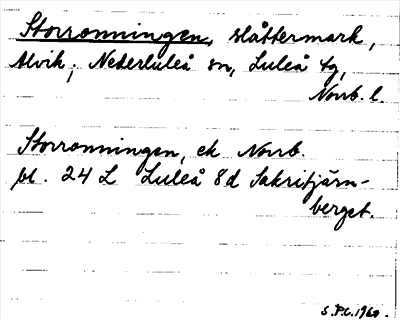 Storronningen, slåttermark,
Alvik, Nederluleå sn, Luleå tg,
Norrb. l.
Storronningen, ek Norrb.
bl. 24 L Luleå 8d Sakritjärn-
berget.
S.P.C. 1960.